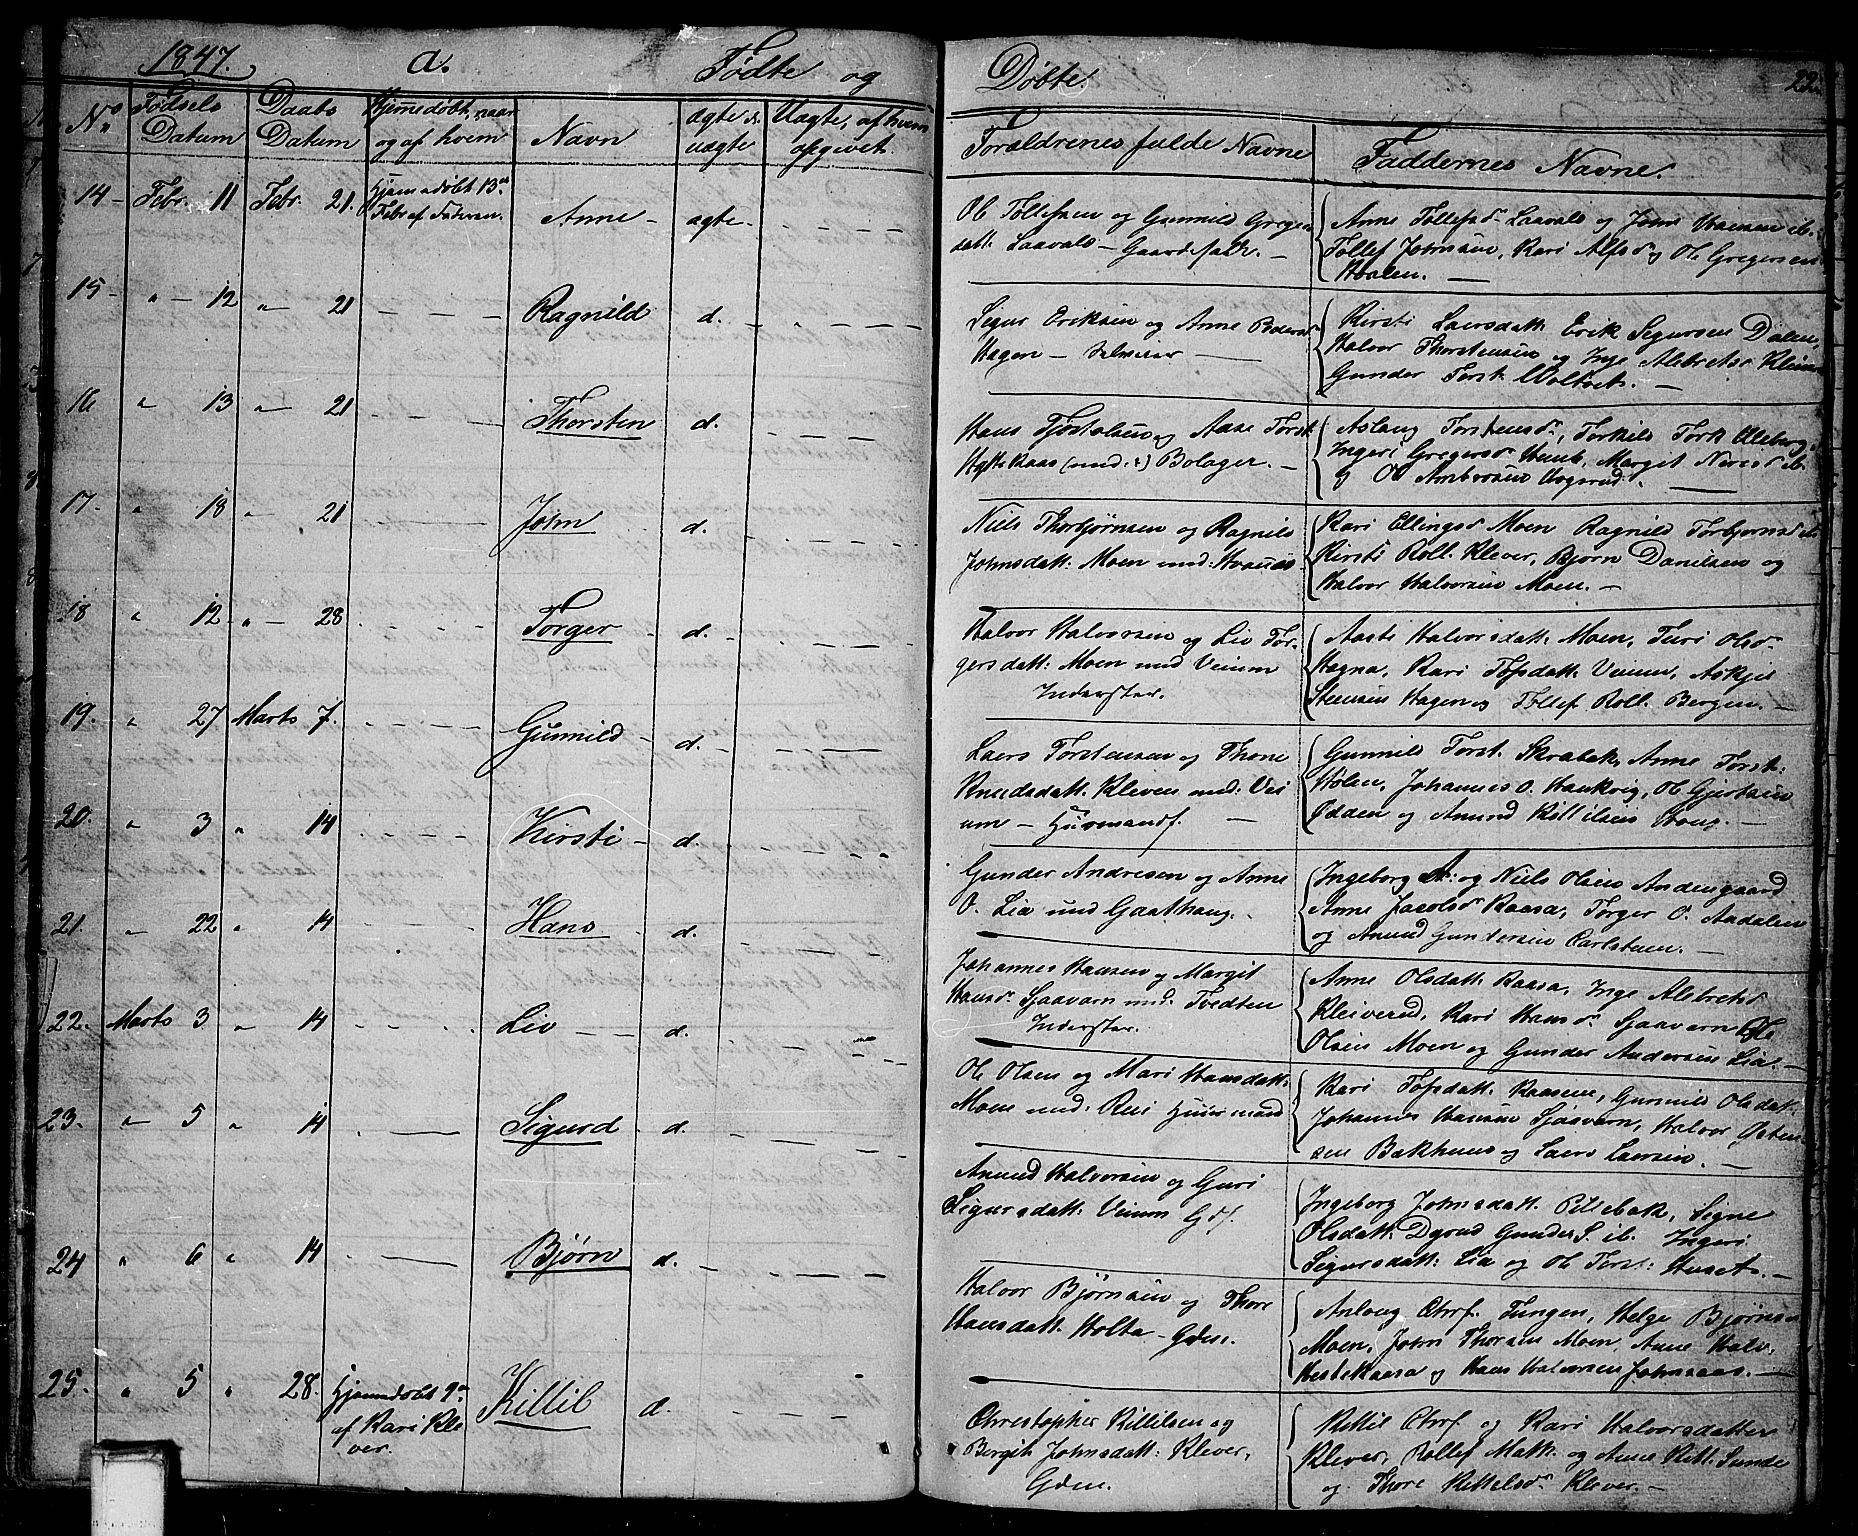 1847. a. Fødte og Døbte. 22.
No Fødsels Datum Daabs Datum Hjemmedøbt, naar og af hvem Navn ægte el. uægte Uægte, af hvem opgivet. Forældrenes fulde Navne Faddernes Navne.
14 Febr. 11 Febr. 21. Hjemmedøbt 13de Febr af Faderen. Anne ægte
Ole Tollefsen og Gunnild Greger
datt. Laavals — Gaardefolk. —
Anne Tollefsd. Laavals og John Hansen ib.
Tollef Johnsen, Kari Alfsd og Ole Gregersen
Hvalen. —
15 " 12 " 21 Ragnild d.
Sigur Eriksen og Anne Pedersd
Hagen — Selveier —
Kirsti Laersdatt. Erik Sigursen Dalen,
Halvor Thorstensen og Inge Alebretsd Kleiver
Gunder Torst. Woltvet. —
16 " 13 " 21 Thorsten d.
Hans Tjøstolsen og Aase Torst.
Hyttekaas (und: t) Bolager. —
Aslaug Torstensd, Torkils Tork Olleberg,
Ingeri Gregersd Hemb, Margit Nirisd ib.
og Ole Ambersen Hogerud. —
17. " 18 " 21 John d.
Niels Thorbjørnsen og Ragnild
Johnsdatt: Moen und:
Kari Ellingsd Moen Ragnild Torbjørnsd ib
Kirsti Roll. Klever, Bjørn Danielsen og
Halvor Halvorsen Moen. —
18 " 12 " 28 Torger d.
Halvor Halvorsen og Liv Tor-
gersdatt: Moen und Veium
Inderster.
Aaste Halvorsdatt: Moen, Turi Olsd
Hagna, Kari Tofsdatt. Veium, Askjer
Stensen Hagen og Tollef Roll. Bergen. —
19. " 27 Marts 7. Gunnild d.
Laers Torstensen og Thone
Knudsdatt. Kleven und: Vei
um — Husmandsf. —
Gunnild Torst. Skrabek, Anne Torst:
Hølen, Johannes O. Haukvig, Ole Gjertsen
Odden og Amund Killilsen Houg. —
20. " 3 " 14 Kirsti d.
Gunder Andresen og Anne
O. Lia und Gaathaug.
Ingeborg A: og Niels Olsen Andengaard
Anne Jacobsd Kaasa, Torger O. Aadalen
og Amund Gundersen Carlstuen. —
21. " 22 " 14 Hans d.
Johannes Hansen og Margit
Hansd. Sjaavarn und: Tvedten
Inderster.
Anne Olsdatt. Kaasa, Inge Alebretsd
Kleiverud, Kari Hansd. Sjaavarn Ole
Olsen Moen og Gunder Andersen Lia. —
22. Marts 3 " 14 Liv d.
Ole Olsen og Mari Hansdatt.
Moen und: Rui Huusmand
Kari Tofsdatt. Kaasene, Gunnild Olsdatt.
Johannes Hansen Sjaavarn, Halvor Østen
sen Bækhuus og Laers Laersen. —
23. " 5 " 14 Sigurd d.
Amund Halvorsen og Guri
Sigursdatt. Veium Gdf.
Ingeborg Johnsdatt. Pillebæk, Signe
Olsdatt. Dyrud Gunder S. ib. Ingeri
Sigursdatt: Lia og Ole Torst: Huset. —
24 " 6 " 14 Bjørn d.
Halvor Bjørnsen og Thore
Hansdatt. Holta — Gden.
Aslaug Chrf. Tungen, Helge Bjørnsen
Moen, John Thorsen Moen, Anne Halv.
Hestekaasa og Hans Halvorsen Johnsaas. —
25. " 5 " 28. Hjemmedøbt 9de af Kari Kle ver. Killil d.
Christopher Killilsen og
Bergit Johnsdatt: Klever,
Gden.
Kittil Chrf og Kari Halvorsdatter
Klever, Rollef Math. og Anne Kitt. Sunde
og Thore Kittelsdr Klever. —